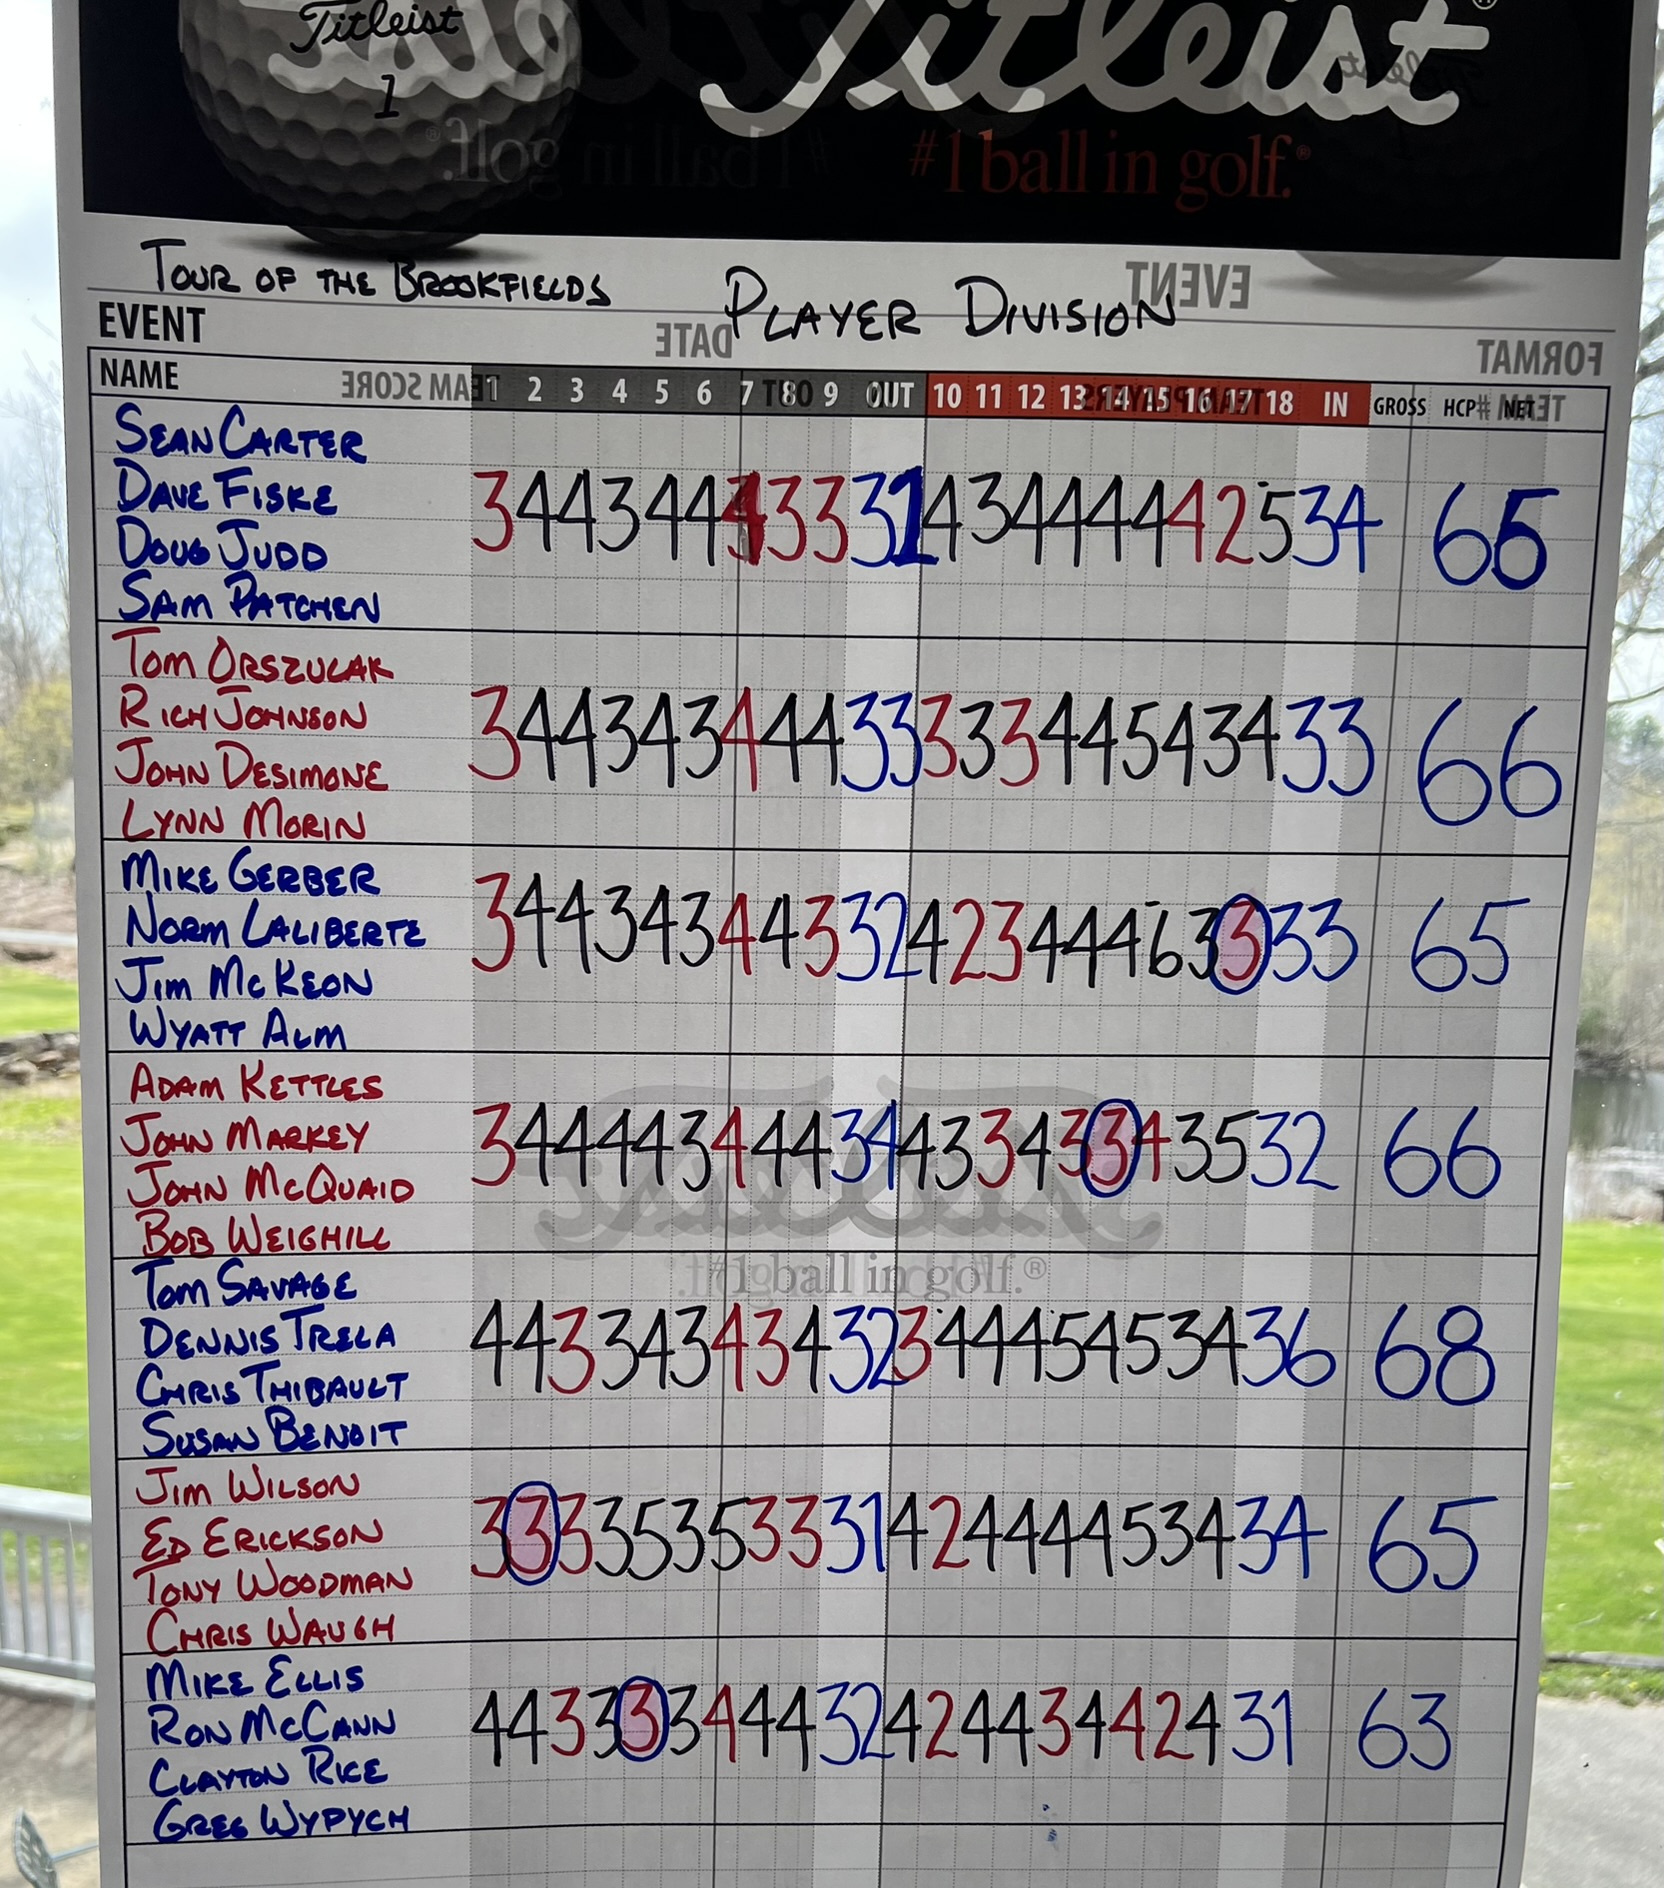 Titleist
1
Titleist®
#1 ball in golf.®
TOUR OF THE BROOKFIELDS PLAYER DIVISION
EVENT
NAME 1 2 3 4 5 6 7 8 9 OUT 10 11 12 13 14 15 16 17 18 IN GROSS HCP NET
SEAN CARTER
DAVE FISKE 3 4 4 3 4 4 3 3 3 31 4 3 4 4 4 4 4 2 5 34 65
DOUG JUDD
SAM PATCHEN
TOM ORSZULAK
RICH JOHNSON 3 4 4 3 4 3 4 4 4 33 3 3 3 4 4 5 4 3 4 33 66
JOHN DESIMONE
LYNN MORIN
MIKE GERBER
NORM LALIBERTE 3 4 4 3 4 3 4 4 3 32 4 2 3 4 4 4 6 3 3 33 65
JIM MCKEON
WYATT ALM
ADAM KETTLES
JOHN MARKEY 3 4 4 4 4 3 4 4 4 34 4 3 3 4 3 3 4 3 5 32 66
JOHN MCQUAID
BOB WEIGHILL
#1 ball in golf.®
TOM SAVAGE
DENNIS TRELA 4 4 3 3 4 3 4 3 4 32 3 4 4 4 5 4 5 3 4 36 68
CHRIS THIBAULT
SUSAN BENOIT
JIM WILSON
ED ERICKSON 3 3 3 3 5 3 5 3 3 31 4 2 4 4 4 4 5 3 4 34 65
TONY WOODMAN
CHRIS WAUGH
MIKE ELLIS
RON MCCANN 4 4 3 3 3 3 4 4 4 32 4 2 4 4 3 4 4 2 4 31 63
CLAYTON RICE
GREG WYPYCH